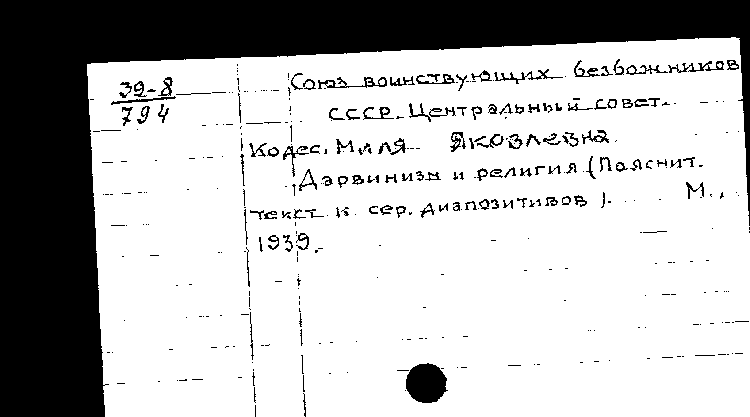 39-8
794
Союз воинствующих безбожников
СССР. Центральный совет.
Кодес, Миля Яковлевна
Дарвинизм и религия (Пояснит.
текст к сер. диапозитивов). М.,
1939.